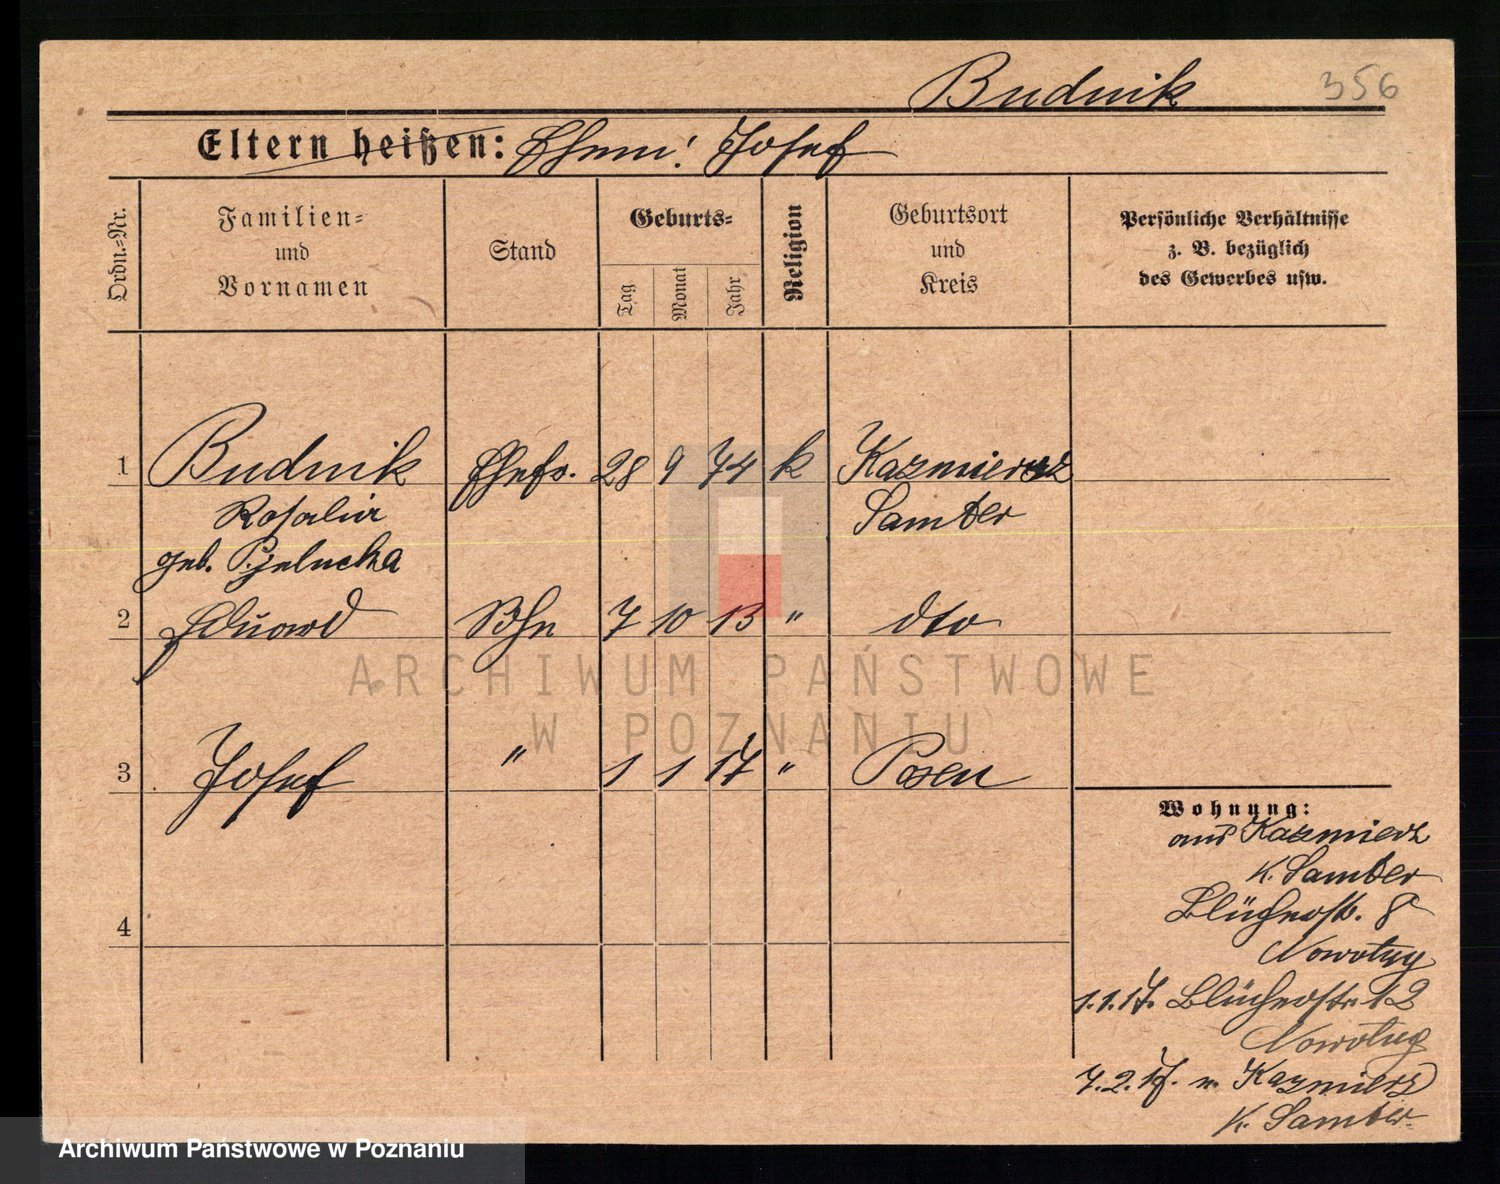 Budnik 356
Eltern heißen: Ehem: Josef
Ordn.-Nr.
Familien-
und
Vornamen
Stand
Geburts-
Tag
Monat
Jahr
Religion
Geburtsort
und
Kreis
Persönliche Verhältnisse
z. B. bezüglich
des Gewerbes usw.
1 Budnik Ehefr. 28 9 74 k Kazmierz
Rosalia Samter
geb. Pjelucka
2 Eduard Shn 7 10 13 " dto
ARCHIWUM PAŃSTWOWE
W POZNANIU
3 Josef " 1 1 17 " Posen
Wohnung:
aus Kazmierz
K. Samter
4 Blücherstr. 8
Nowotny
1.1.17. Blücherstr. 12
Nowotny
7.2.17. n. Kazmierz
K. Samter.
Archiwum Państwowe w Poznaniu